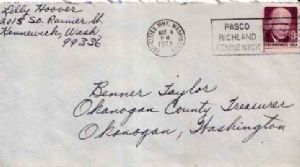 Lilly Hoover
2015 So. Rainier St.
Kennewick, Wash.
99336
1973
PASCO
RICHLAND
KENNEWICK
Benner Taylor
Okanogan County Treasurer
Okanogan, Washington